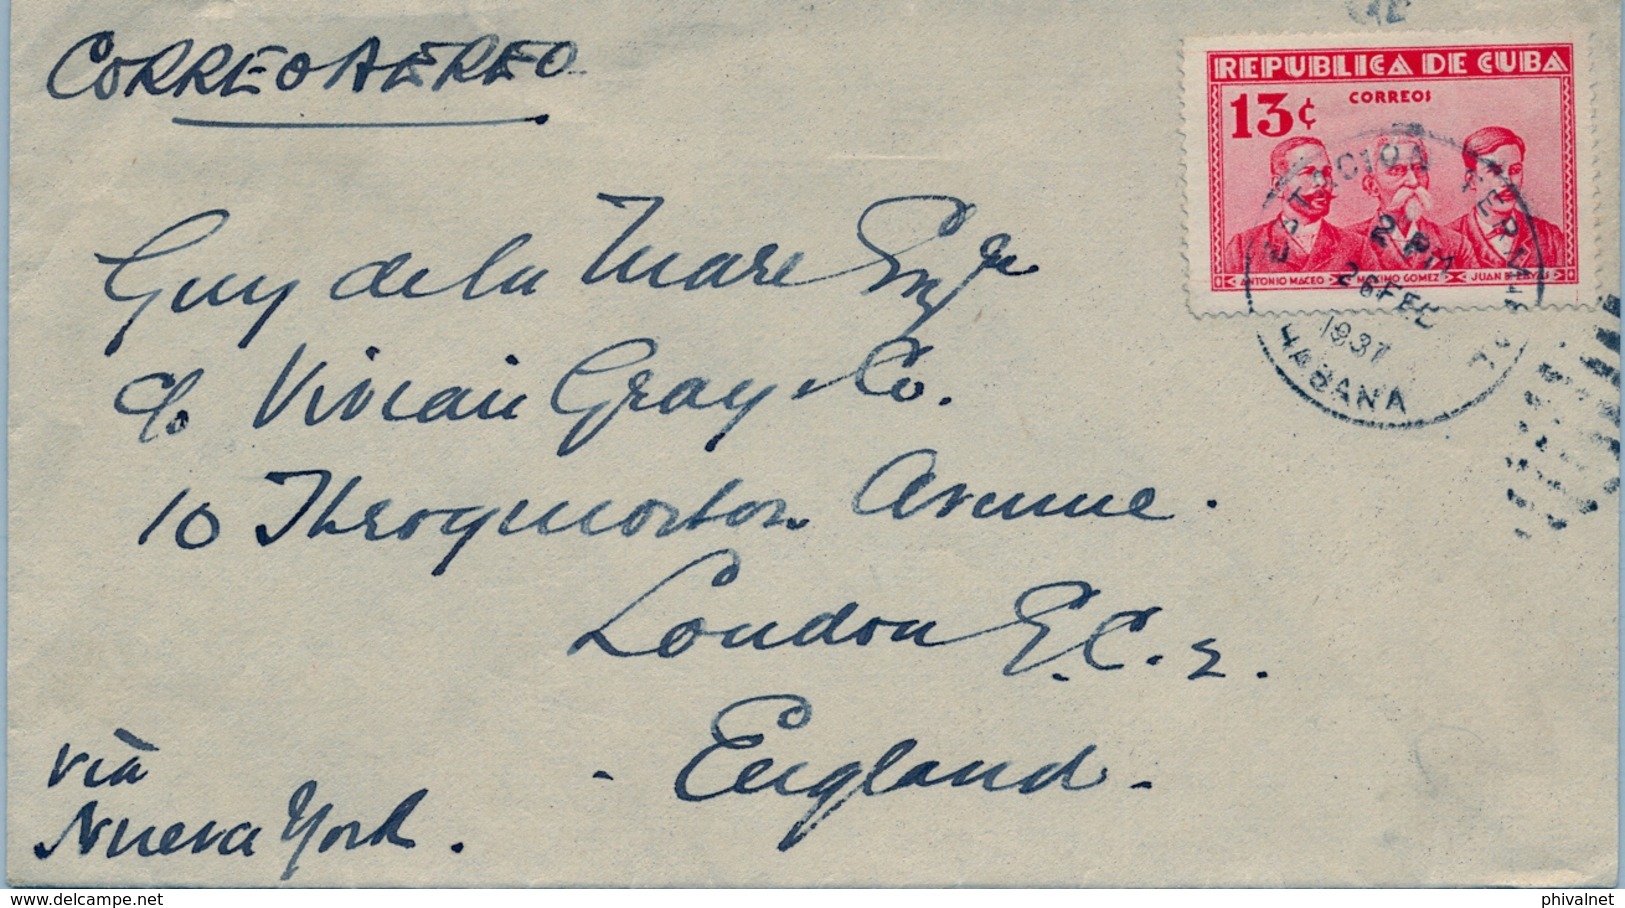 CORREO AEREO
REPUBLICA DE CUBA
13¢ CORREOS
ANTONIO MACEO MAXIMO GOMEZ JUAN B. ZAYAS
ESTACION TERMINAL
2 PM
26 FEB
1937
HABANA
Guy de la Mare Esqr
c/o Vivian Gray & Co.
10 Throgmorton Avenue.
London E.C.2.
England.
via
Nueva York.
delcampe.net
phivalnet